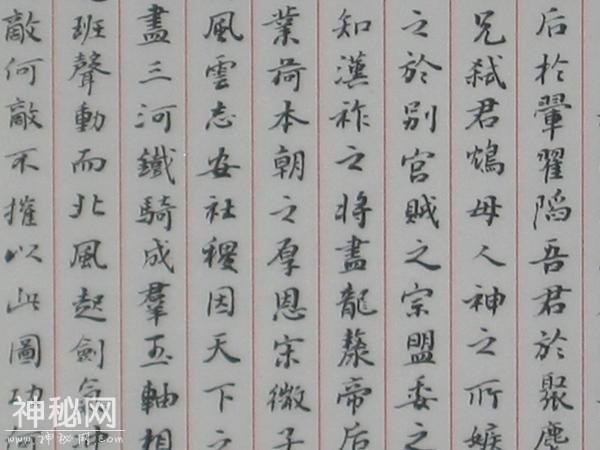 后於翬翟陷吾君於聚麀
兄弒君鴆母人神之所嫉
之於别宮賊之宗盟委之
知漢祚之將盡龍漦帝后
業荷本朝之厚恩宋微子
風雲志安社稷因天下之
盡三河鐵騎成羣玉軸相
班聲動而北風起劍氣沖
敵何敵不摧以此圖功何
神秘网
www.神秘网.com